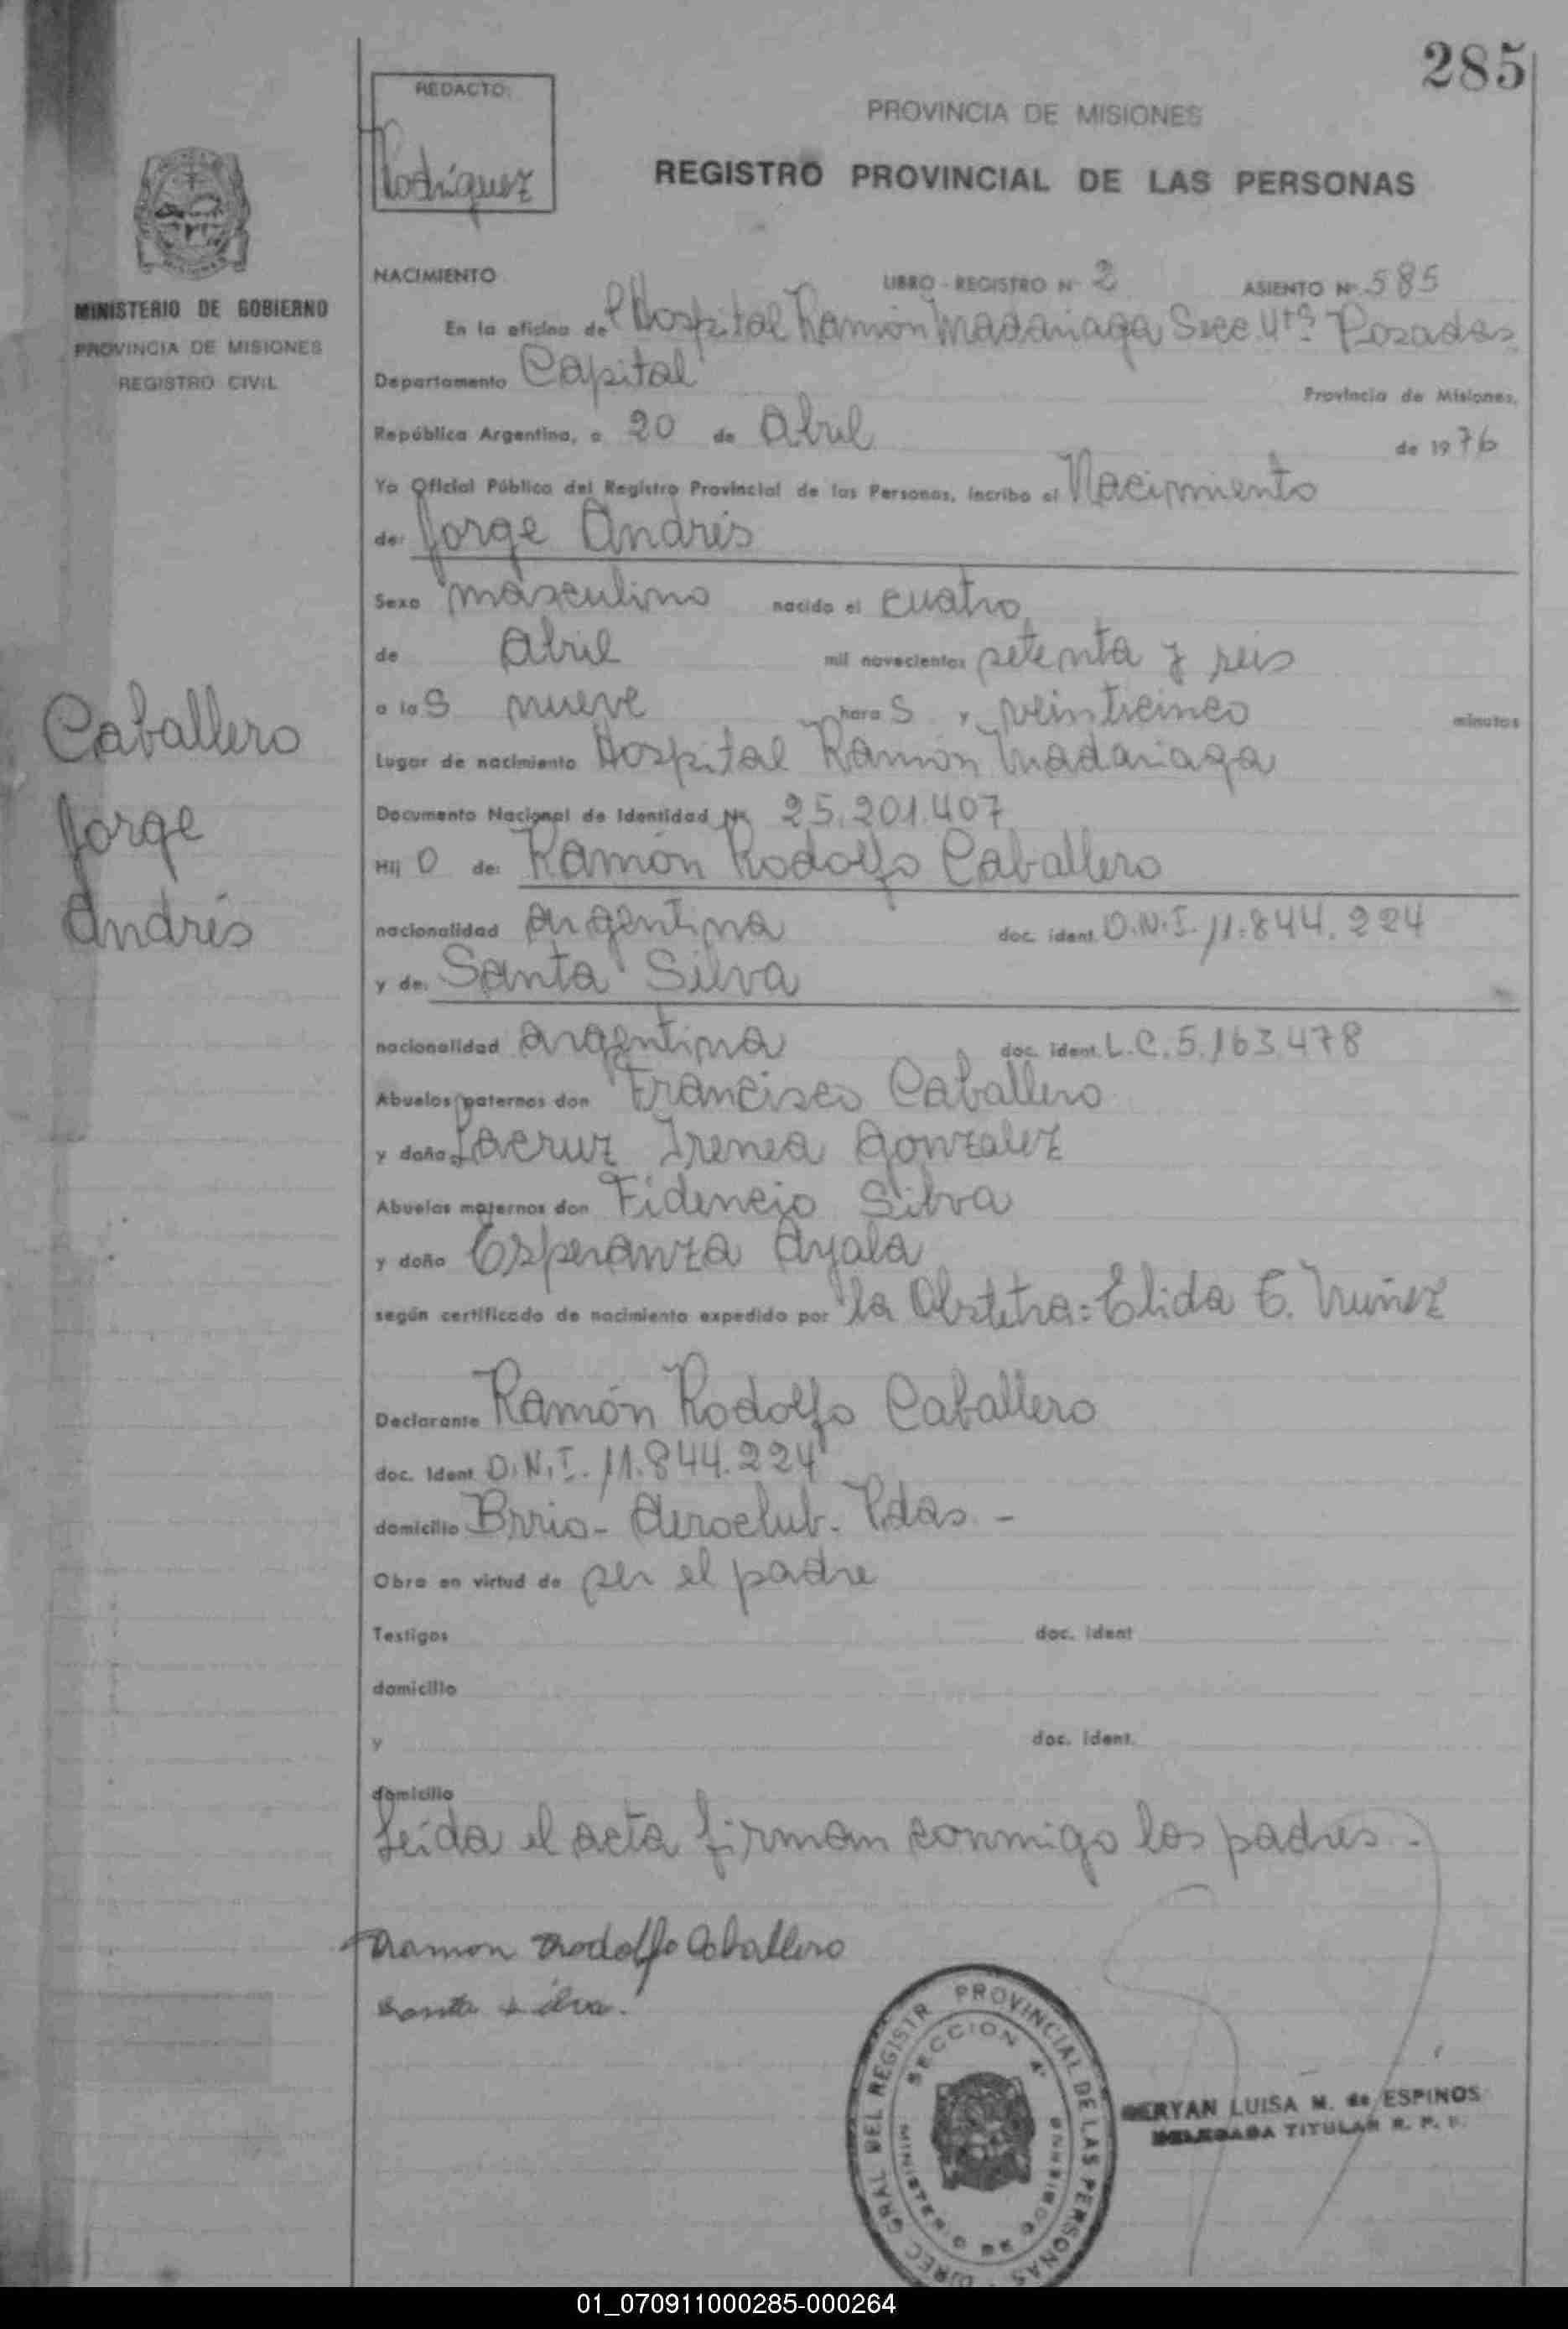 285
REDACTO:
Rodríguez
PROVINCIA DE MISIONES
REGISTRO PROVINCIAL DE LAS PERSONAS
MINISTERIO DE GOBIERNO
PROVINCIA DE MISIONES
REGISTRO CIVIL
NACIMIENTO LIBRO - REGISTRO Nº 2 ASIENTO Nº 585
En la oficina del Hospital Ramón Madariaga Secc. 4ta Posadas
Departamento Capital Provincia de Misiones,
República Argentina, a 20 de Abril de 1976
Yo Oficial Público del Registro Provincial de las Personas, incribo el Nacimiento
de: Jorge Andrés
Sexo masculino nacido el cuatro
de Abril mil novecientos setenta y seis
a las nueve horas y veinticinco minutos
Lugar de nacimiento Hospital Ramón Madariaga
Documento Nacional de Identidad Nº 25.201.407
Hijo de: Ramón Rodolfo Caballero
nacionalidad argentina doc. ident. D.N.I. 11.844.224
y de: Santa Silva
nacionalidad argentina doc. ident. L.C. 5.163.478
Abuelos paternos don Francisco Caballero
y doña Lacruz Irenea Gonzalez
Abuelos maternos don Fidencio Silva
y doña Esperanza Ayala
según certificado de nacimiento expedido por la Obstetra: Elida E. Nuñez
Declarante Ramón Rodolfo Caballero
doc. Ident D.N.I. 11.844.224
domicilio Brrio - Aeroclub. Pdas. -
Obra en virtud de ser el padre
Testigos doc. ident
domicilio
y doc. ident.
domicilio
Leída el acta firman conmigo los padres.
Caballero
Jorge
Andrés
Ramon Rodolfo Caballero
Santa Silva.
DIREC GRAL DEL REGISTR PROVINCIAL DE LAS PERSONAS
SECCION 4ª
MINISTERIO DE GOBIERNO
LUISA M. de ESPINOS
DELEGADA TITULAR R. P. P.
01_070911000285-000264